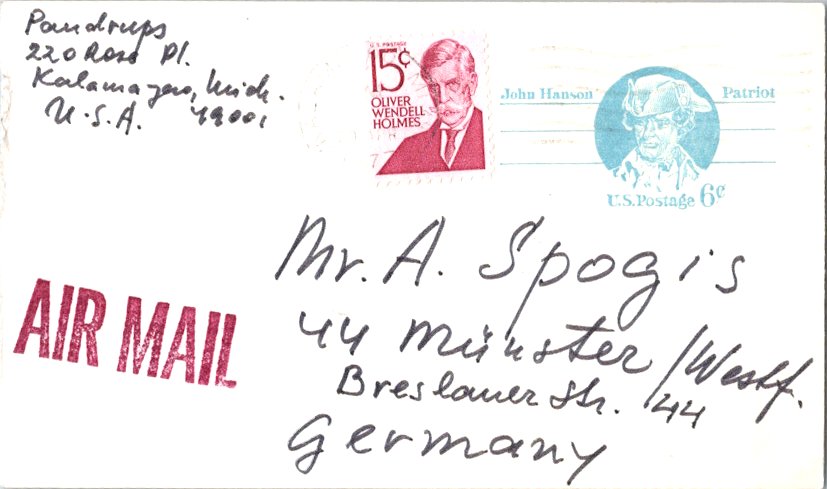 Pandrups
220 Ross Pl.
Kalamazoo, Mich.
U.S.A. 49001
U.S. POSTAGE
15¢
OLIVER
WENDELL
HOLMES
John Hanson Patriot
U.S. Postage 6¢
AIR MAIL
Mr. A. Spogis
44 Münster/Westf.
Breslauer Str. 44
Germany